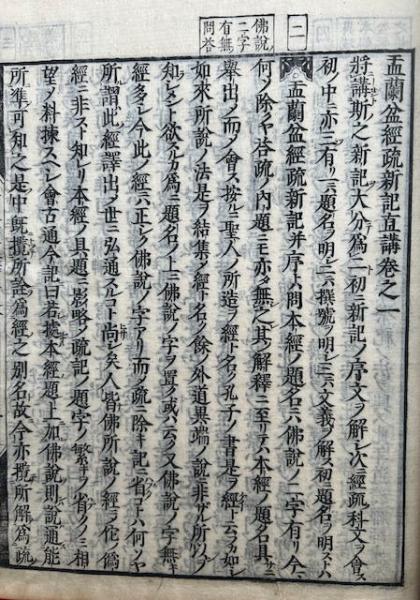 佛說ノ
二字
有無
問答
二
盂蘭盆經疏新記直講卷之一
將講斯之新記大分爲二初ニ新記ノ序文ヲ解シ次ニ經疏科文ヲ會ス
初ノ中ニ亦三有リ一ニハ題名ヲ明シ二ニハ撰號ヲ明シ三ニハ文義ヲ解ス初題名ヲ明ストハ
盂蘭盆經疏新記并ニ序ト問本經ノ題名ニハ佛說ノ二字有リ今
何ソ除クヤ答疏ノ内題ニモ亦タ無之其ノ解釋ニ至リテハ本經ノ題名具ニ
舉出ノ而ノ會ス按ルニ聖人ノ所造ヲ經ト名ク孔子ノ書是ヲ經ト云フカ如シ
如來所說ノ法是ヲ結集ノ經ト名ク餘ノ外道異端ノ說ニ非サル所以ヲ
知レント欲スルカ爲ニ題名ノ上ニ佛說ノ字ヲ置ク或ハ云ク又佛說ノ字無キ
經多シ今此ノ經ニハ正シク佛說ノ字アリ而ノ疏ニ除キ記ニ省クコハ何ソヤ
所謂此經譯出ノ世ニ弘通スルコト尚シ矣人皆佛所說ノ經ニ佗ノ僞
經ニ非スト知レリ本經ノ具題ニ影略ノ疏記ノ題字ノ繁キヲ省クノミ相
望ノ料揀スヘシ會古通今記曰若據本經題上加佛說則說通能
所準可知之是中既攬所詮爲經之別名故今亦攬所解爲疏